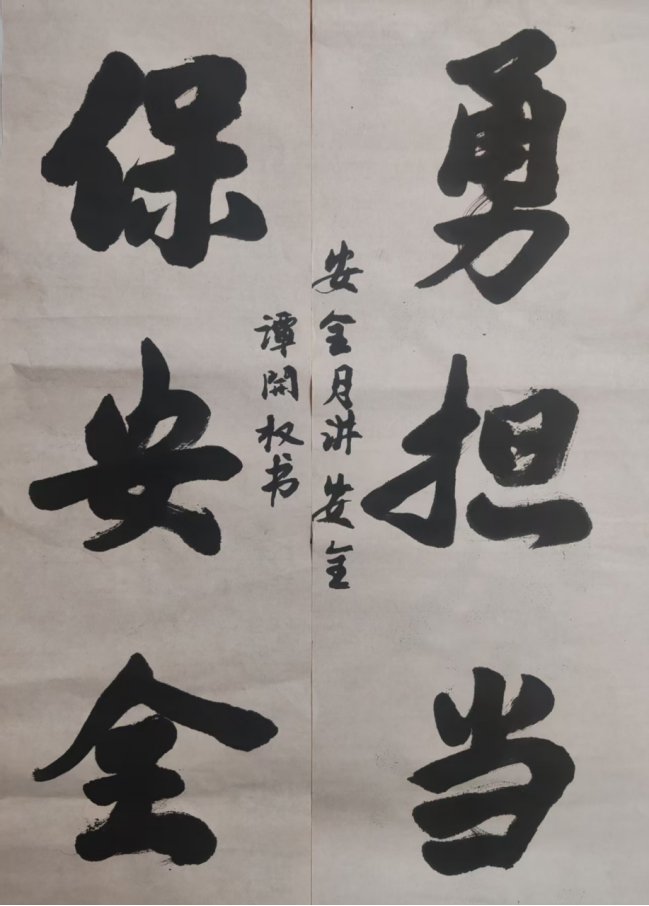 勇担当
保安全
安全月讲安全
谭开权书